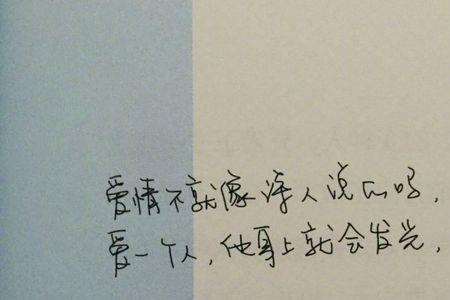 爱情不就像诗人说的吗，
爱一个人，他身上就会发光，